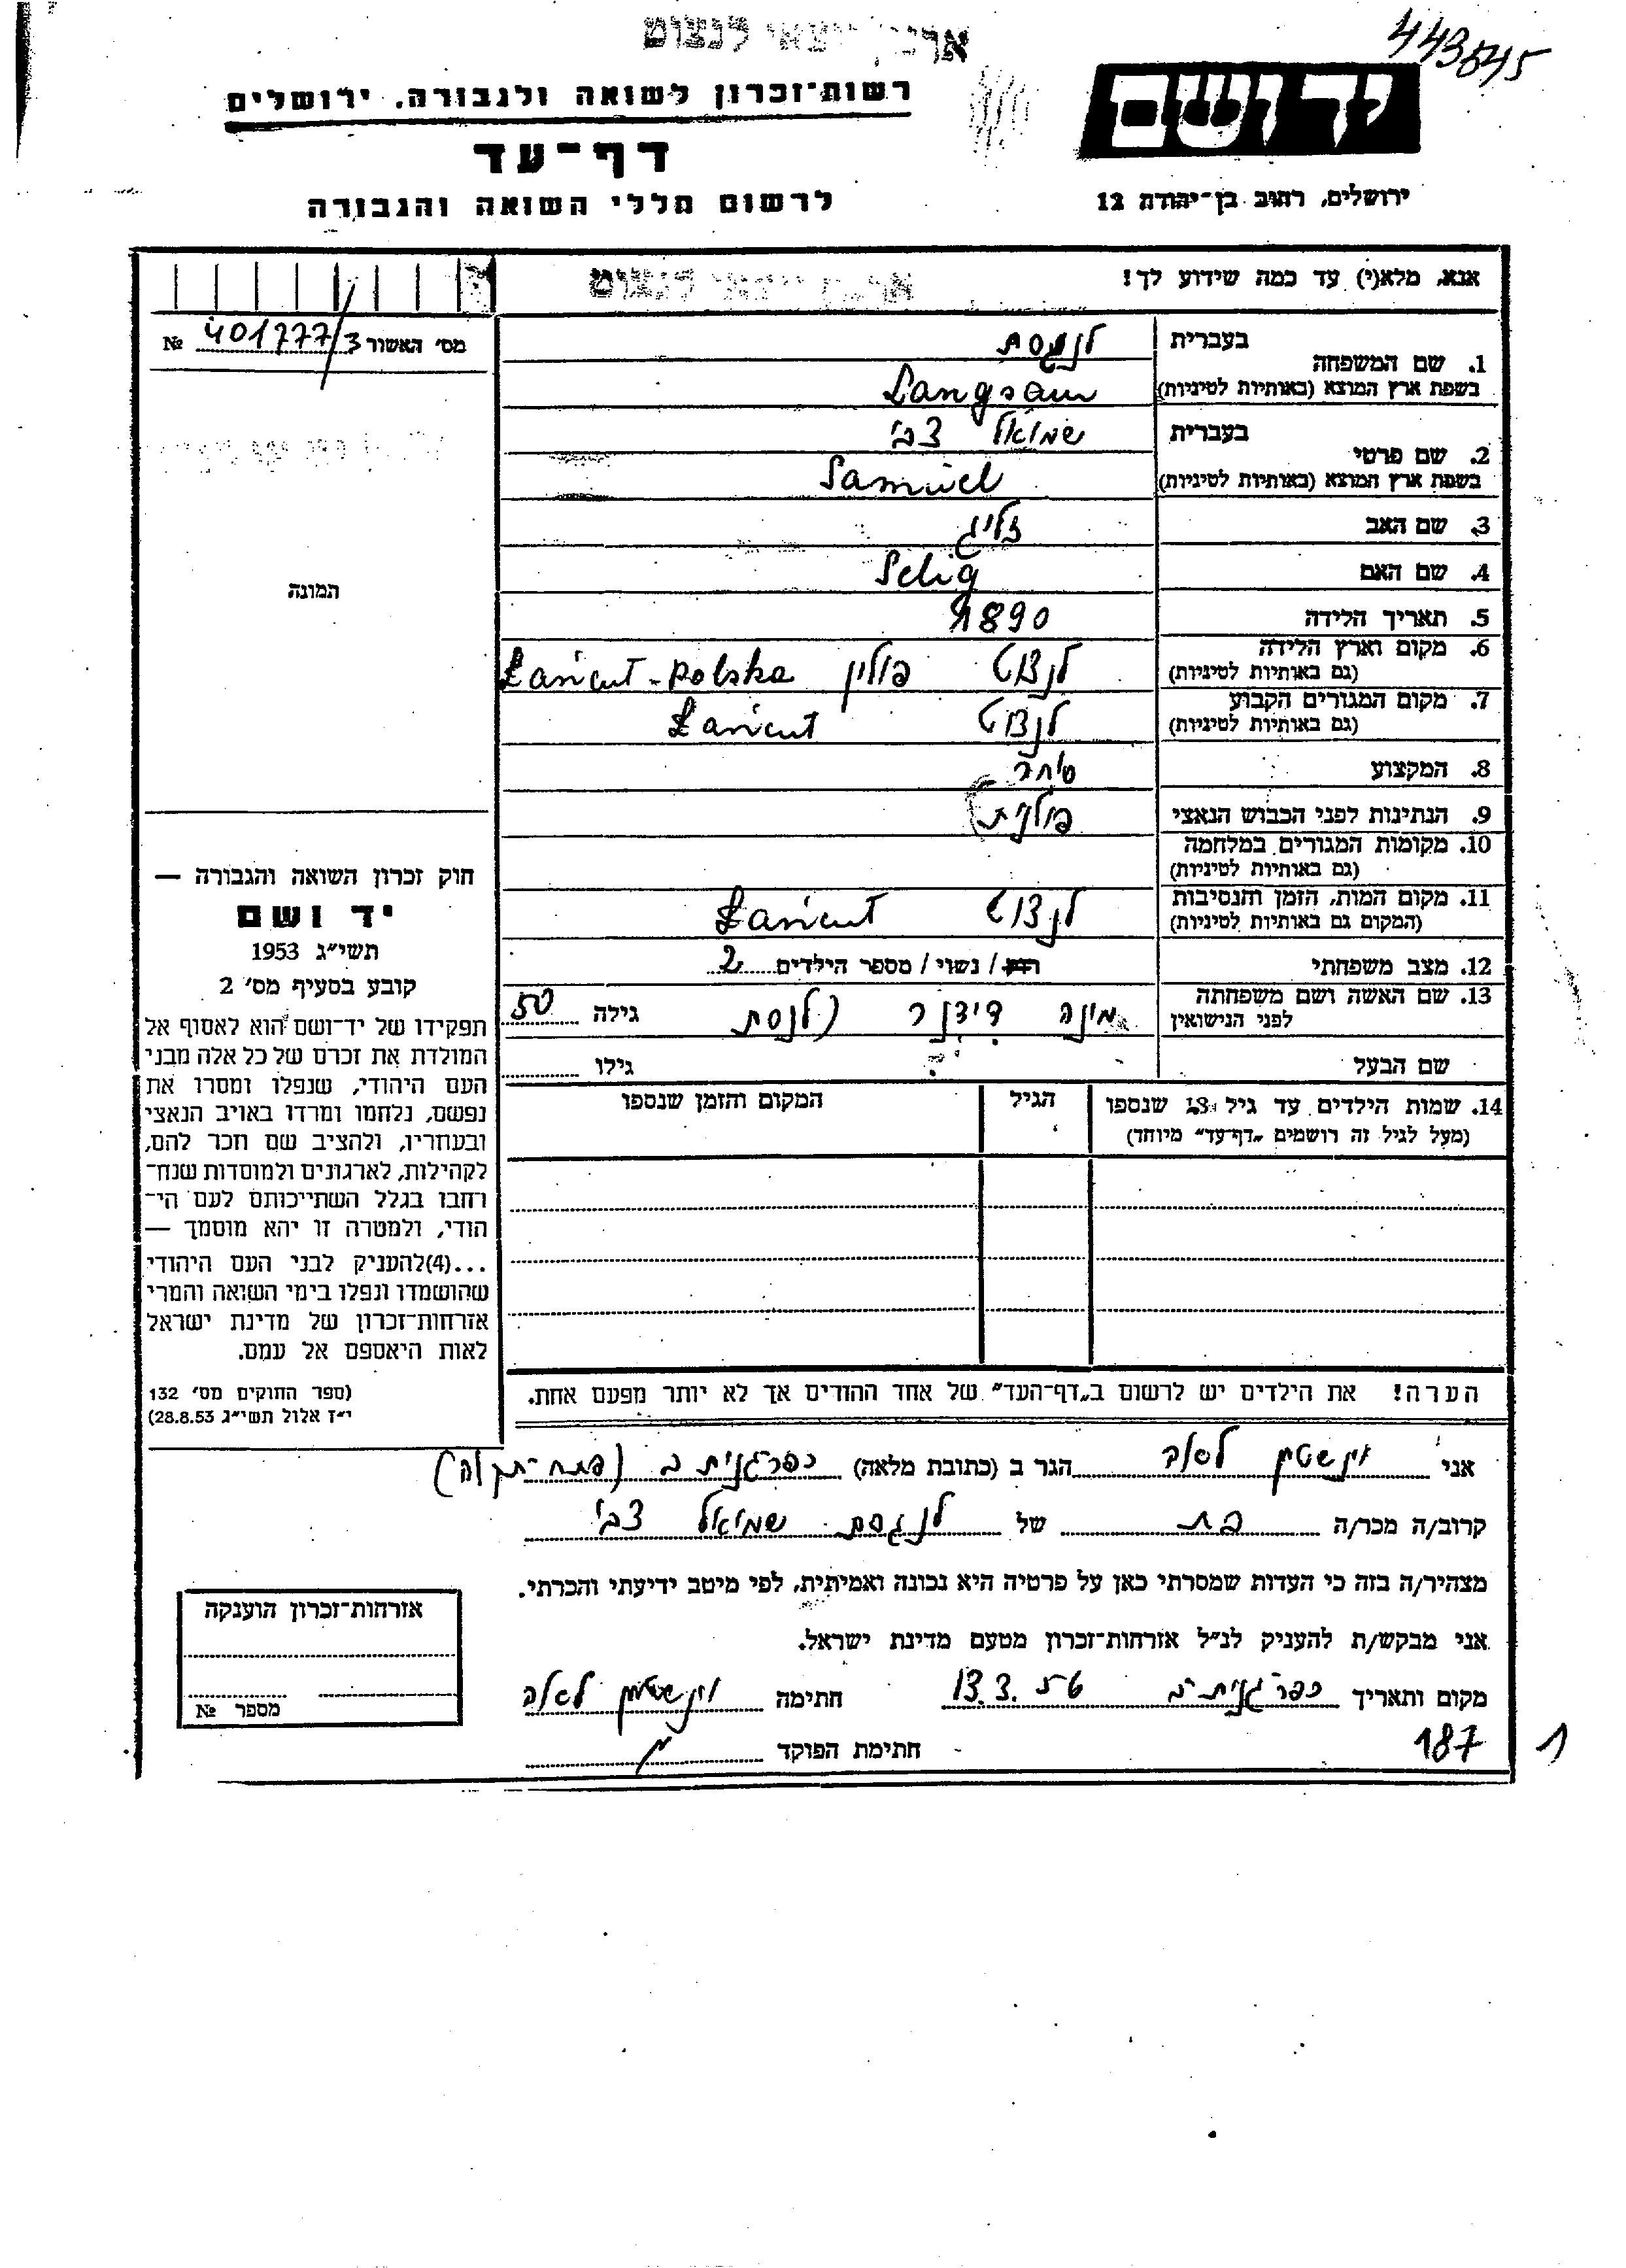 443845
ארגון יוצאי לנצוט
יד ושם
רשות־זכרון לשואה ולגבורה, ירושלים
דף־עד
לרשום חללי השואה והגבורה
ירושלים, רחוב בן־יהודה 12
אנא, מלא(י) עד כמה שידוע לך!
ארגון יוצאי לנצוט
מס' האשור 401777/3 №
בעברית
1. שם המשפחה
בשפת ארץ המוצא (באותיות לטיניות)
Langsam
בעברית שמואל צבי
2. שם פרטי
בשפת ארץ המוצא (באותיות לטיניות)
Samuel
3. שם האב זליג
4. שם האם Selig
5. תאריך הלידה 1890
6. מקום וארץ הלידה לנצוט פולין Łańcut - Polska
(גם באותיות לטיניות)
7. מקום המגורים הקבוע לנצוט Łańcut
(גם באותיות לטיניות)
8. המקצוע סוחר
9. הנתינות לפני הכבוש הנאצי פולנית
10. מקומות המגורים במלחמה
(גם באותיות לטיניות)
11. מקום המות, הזמן והנסיבות לנצוט Łańcut
(המקום גם באותיות לטיניות)
12. מצב משפחתי רווק / נשוי / מספר הילדים 2
13. שם האשה ושם משפחתה מינה גילה 50
לפני הנישואין
שם הבעל גילו
14. שמות הילדים עד גיל 18 שנספו הגיל המקום והזמן שנספו
(מעל לגיל זה רושמים "דף־עד" מיוחד)
תמונה
חוק זכרון השואה והגבורה —
יד ושם
תשי"ג 1953
קובע בסעיף מס' 2
תפקידו של יד־ושם הוא לאסוף אל
המולדת את זכרם של כל אלה מבני
העם היהודי, שנפלו ומסרו את
נפשם, נלחמו ומרדו באויב הנאצי
ובעוזריו, ולהציב שם וזכר להם,
לקהילות, לארגונים ולמוסדות שנח־
רחבו בגלל השתייכותם לעם הי־
הודי, ולמטרה זו יהא מוסמך —
...(4)להעניק לבני העם היהודי
שהושמדו ונפלו בימי השואה והמרי
אזרחות־זכרון של מדינת ישראל
לאות היאספם אל עמם.
(ספר החוקים מס' 132
י"ז אלול תשי"ג 28.8.53)
הערה! את הילדים יש לרשום ב"דף־העד" של אחד ההורים אך לא יותר מפעם אחת.
אני הגר ב (כתובת מלאה) כפר גנית ב (פתח־תקוה)
קרוב/ה מכר/ה בת של לנגסם שמואל צבי
מצהיר/ה בזה כי העדות שמסרתי כאן על פרטיה היא נכונה ואמיתית, לפי מיטב ידיעתי והכרתי.
אני מבקש/ת להעניק לנ"ל אזרחות־זכרון מטעם מדינת ישראל.
מקום ותאריך כפר גנית ב 13.3. חתימה
187 חתימת הפוקד
1
אזרחות־זכרון הוענקה
מספר №